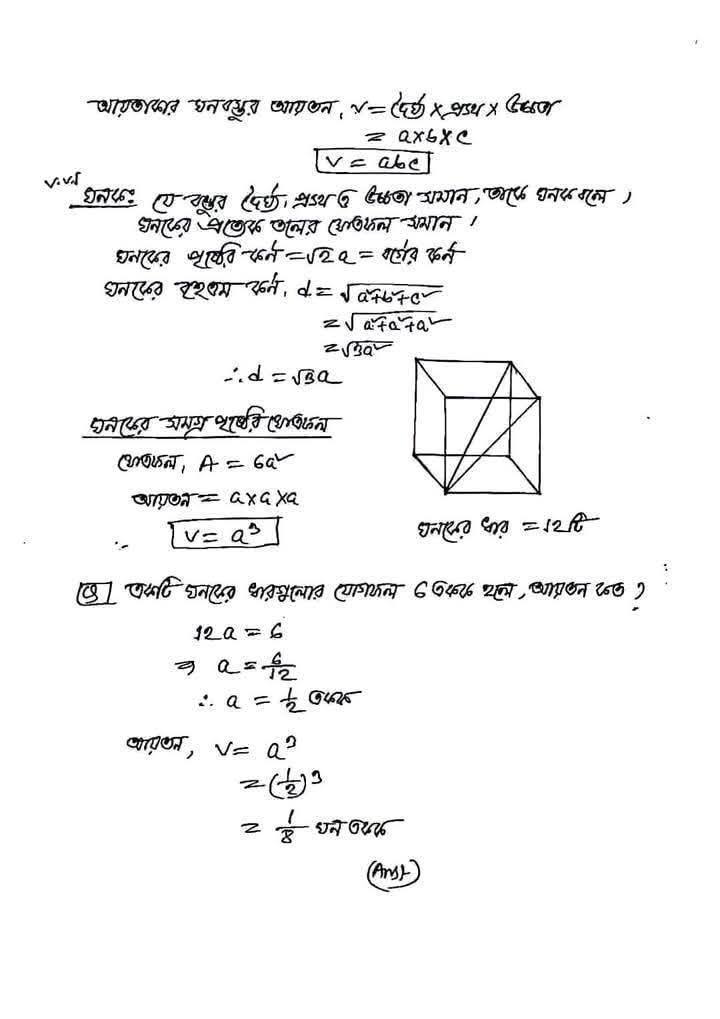 আয়তাকার ঘনবস্তুর আয়তন, v = দৈর্ঘ্য × প্রস্থ × উচ্চতা
= a×b×c
v = abc
v.v.I
ঘনকঃ যে বস্তুর দৈর্ঘ্য, প্রস্থ ও উচ্চতা সমান, তাকে ঘনক বলে।
ঘনকের প্রত্যেক তলের ক্ষেত্রফল সমান।
ঘনকের পৃষ্ঠের কর্ণ = √2 a = বর্গের কর্ণ
ঘনকের বৃহত্তম কর্ণ, d = √(a²+b²+c²)
= √(a²+a²+a²)
= √3a²
∴ d = √3a
ঘনকের সমগ্র পৃষ্ঠের ক্ষেত্রফল
ক্ষেত্রফল, A = 6a²
আয়তন = a×a×a
∴ v = a³
ঘনকের ধার = 12টি
Q একটি ঘনকের ধারগুলোর যোগফল 6 একক হলে, আয়তন কত?
12a = 6
⇒ a = 6/12
∴ a = 1/2 একক
আয়তন, v = a³
= (1/2)³
= 1/8 ঘন একক
(Ans)